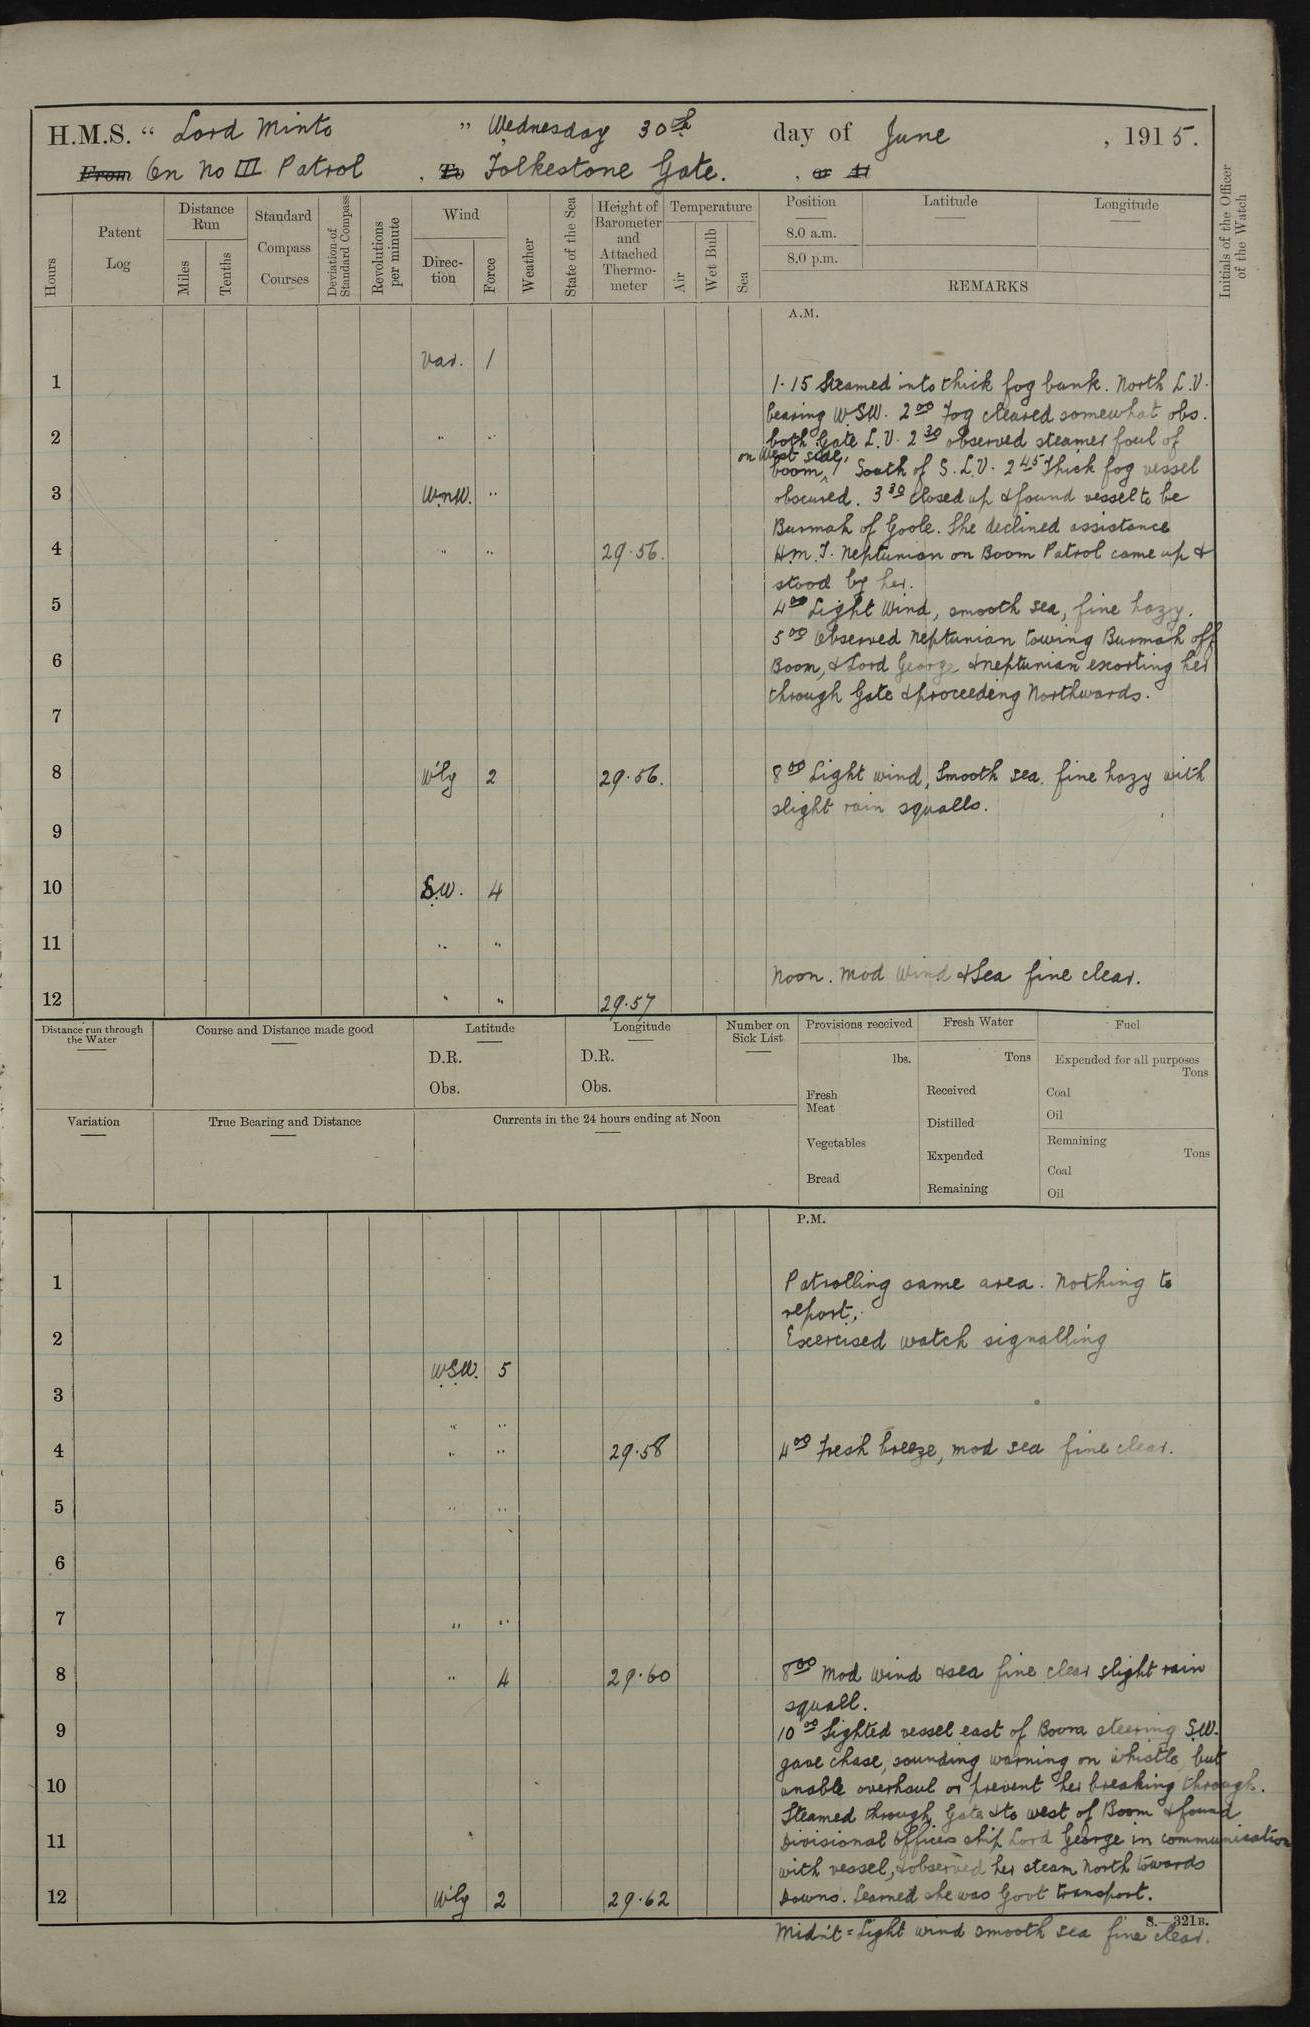 H.M.S. “ Lord Minto ” Wednesday 30th day of June , 1915.
From On No III Patrol , To Folkestone Gate. , or At
Hours
Patent Log
Distance Run
Miles
Tenths
Standard Compass Courses
Deviation of Standard Compass
Revolutions per minute
Wind
Direc-tion
Force
Weather
State of the Sea
Height of Barometer and Attached Thermo-meter
Temperature
Air
Wet Bulb
Sea
Position
8.0 a.m.
8.0 p.m.
Latitude
Longitude
REMARKS
Initials of the Officer of the Watch
A.M.
Var. 1
1 1.15 Steamed into thick fog bank. North L.V.
bearing WSW. 2 00 Fog cleared somewhat obs.
2 " " both Gate L.V. 2 30 observed steamer foul of
on West side,
boom, South of S. L.V. 2 45 Thick fog vessel
3 WNW. " obscured. 3 30 closed up & found vessel to be
Burmah of Goole. She declined assistance
4 " " 29.56. H.M.T. Neptunian on Boom Patrol came up &
stood by her.
5 4 00 Light Wind, smooth sea, fine hazy.
5 00 Observed Neptunian towing Burmah off
6 Boom, & Lord George & Neptunian escorting her
through Gate & proceeding Northwards.
7
8 W'ly 2 29.56. 8 00 Light wind, Smooth sea. fine hazy with
slight rain squalls.
9
10 S.W. 4
11 " "
Noon. Mod Wind & Sea fine clear.
12 " " 29.57
Distance run through the Water
Course and Distance made good
Latitude
D.R.
Obs.
Longitude
D.R.
Obs.
Number on Sick List
Provisions received
lbs.
Fresh Meat
Vegetables
Bread
Fresh Water
Tons
Received
Distilled
Expended
Remaining
Fuel
Expended for all purposes
Tons
Coal
Oil
Remaining
Tons
Coal
Oil
Variation
True Bearing and Distance
Currents in the 24 hours ending at Noon
P.M.
1 Patrolling same area. Nothing to
report.
2 Exercised watch signalling
WSW. 5
3
" "
4 " " 29.58 4 00 Fresh breeze, mod sea fine clear.
5 " "
6
7 " "
8 " 4 29.60 8 00 Mod Wind & sea fine clear slight rain
squall.
9 10 00 Sighted vessel east of Boom steering S.W.
gave chase, sounding warning on whistle, but
10 unable overhaul or prevent her breaking through.
Steamed through Gate & to west of Boom & found
11 Divisional Officers ship Lord George in communication
with vessel, & observed her steam North towards
12 W'ly 2 29.62 Downs. Learned she was Govt transport.
S.—321B.
Mid'n't = Light wind smooth sea fine clear.